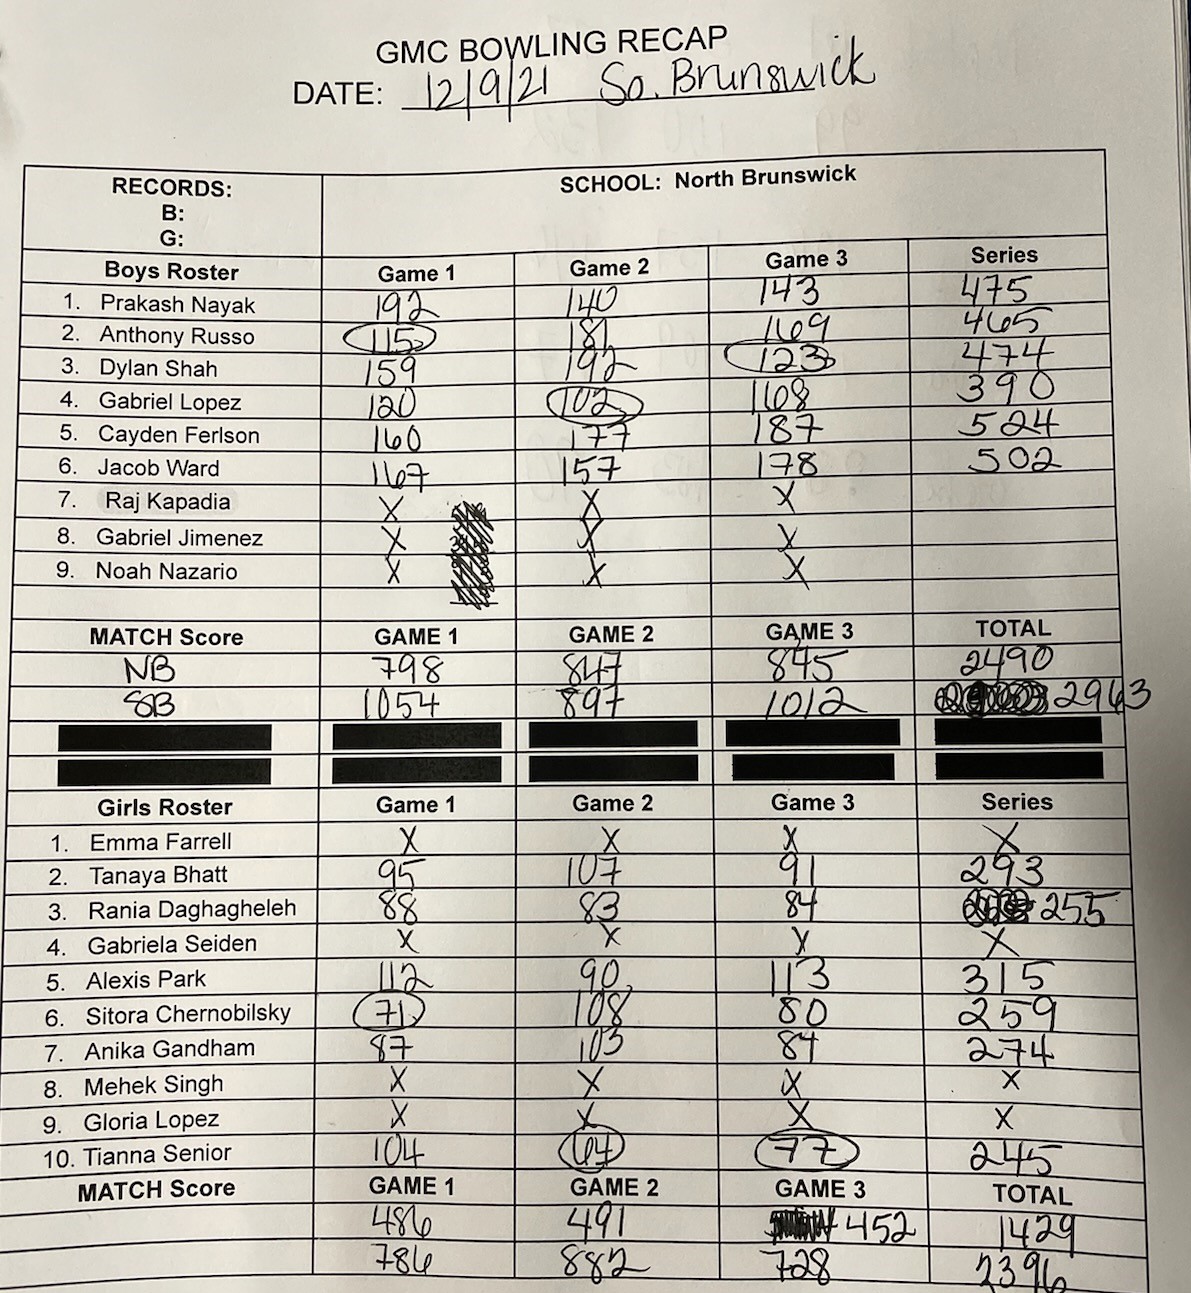 GMC BOWLING RECAP
DATE: 12/9/21 So. Brunswick
RECORDS: SCHOOL: North Brunswick
B:
G:
Boys Roster Game 1 Game 2 Game 3 Series
1. Prakash Nayak 192 140 143 475
2. Anthony Russo 115 181 169 465
3. Dylan Shah 159 192 123 474
4. Gabriel Lopez 120 102 168 390
5. Cayden Ferlson 160 177 187 524
6. Jacob Ward 167 157 178 502
7. Raj Kapadia X X X
8. Gabriel Jimenez X X X
9. Noah Nazario X X X
MATCH Score GAME 1 GAME 2 GAME 3 TOTAL
NB 798 847 845 2490
SB 1054 897 1012 2963
Girls Roster Game 1 Game 2 Game 3 Series
1. Emma Farrell X X X X
2. Tanaya Bhatt 95 107 91 293
3. Rania Daghagheleh 88 83 84 255
4. Gabriela Seiden X X X X
5. Alexis Park 112 90 113 315
6. Sitora Chernobilsky 71 108 80 259
7. Anika Gandham 87 103 84 274
8. Mehek Singh X X X X
9. Gloria Lopez X X X X
10. Tianna Senior 104 64 77 245
MATCH Score GAME 1 GAME 2 GAME 3 TOTAL
486 491 452 1429
786 882 728 2396